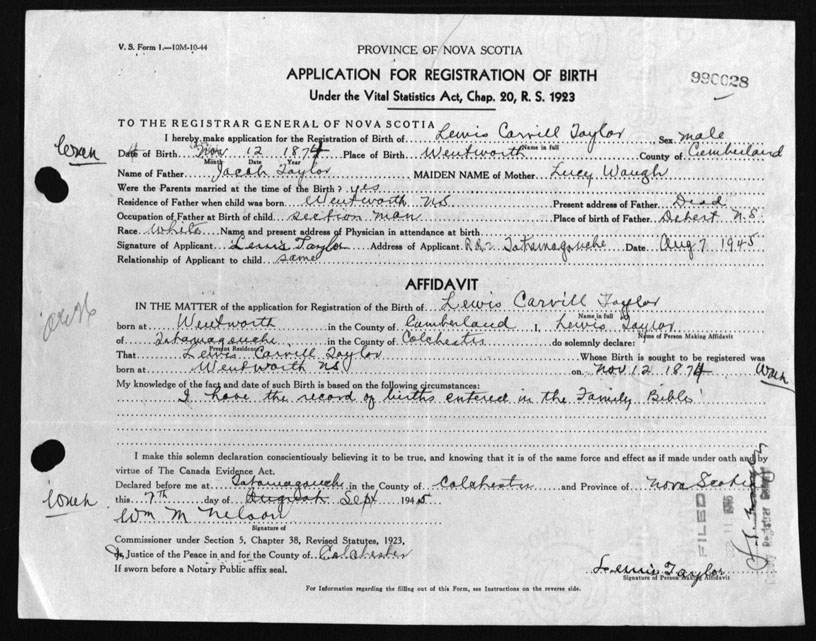 V. S. Form 1.—10M-10-44
PROVINCE OF NOVA SCOTIA
APPLICATION FOR REGISTRATION OF BIRTH
990028
Under the Vital Statistics Act, Chap. 20, R. S. 1923
TO THE REGISTRAR GENERAL OF NOVA SCOTIA
I hereby make application for the Registration of Birth of Lewis Carvill Taylor Sex male
Name in full
Date of Birth Nov 12 1874 Place of Birth Wentworth County of Cumberland
Month Date Year
Name of Father Jacob Taylor MAIDEN NAME of Mother Lucy Waugh
Were the Parents married at the time of the Birth? yes
Residence of Father when child was born Wentworth N.S. Present address of Father Dead
Occupation of Father at Birth of child section man Place of birth of Father Debert N.S.
Race White Name and present address of Physician in attendance at birth
Signature of Applicant Lewis Taylor Address of Applicant R R 2 Tatamagouche Date Aug 7 1945
Relationship of Applicant to child same
AFFIDAVIT
IN THE MATTER of the application for Registration of the Birth of Lewis Carvill Taylor
Name in full
born at Wentworth in the County of Cumberland I, Lewis Taylor
Name of Person Making Affidavit
of Tatamagouche in the County of Colchester do solemnly declare:
Present Residence
That Lewis Carvill Taylor Whose Birth is sought to be registered was
born at Wentworth NS on Nov 12 1874
My knowledge of the fact and date of such Birth is based on the following circumstances:
I have the record of births entered in the Family Bible
I make this solemn declaration conscientiously believing it to be true, and knowing that it is of the same force and effect as if made under oath and by
virtue of The Canada Evidence Act.
Declared before me at Tatamagouche in the County of Colchester and Province of Nova Scotia
this 7th day of August Sept 1945
Wm M Nelson
Signature of
Commissioner under Section 5, Chapter 38, Revised Statutes, 1923,
Justice of the Peace in and for the County of Colchester
If sworn before a Notary Public affix seal.
Lewis Taylor
Signature of Person Making Affidavit
FILED
Deputy Registrar General
For Information regarding the filling out of this Form, see Instructions on the reverse side.